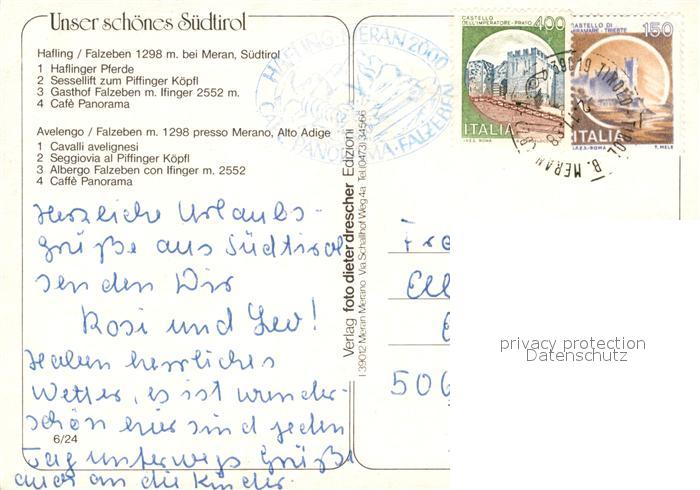 Unser schönes Südtirol
Hafling / Falzeben 1298 m. bei Meran, Südtirol
1 Haflinger Pferde
2 Sessellift zum Piffinger Köpfl
3 Gasthof Falzeben m. Ifinger 2552 m.
4 Cafè Panorama
Avelengo / Falzeben m. 1298 presso Merano, Alto Adige
1 Cavalli avelignesi
2 Seggiovia al Piffinger Köpfl
3 Albergo Falzeben con Ifinger m. 2552
4 Caffè Panorama
Herzliche Urlaubs-
grüße aus Südtirol
senden Wir
Rosi und Leo!
Haben herrliches
Wetter, es ist wunder-
schön hier sind jeden
Tag unterwegs Grüße
auch an die Kinder.
6/24
Verlag foto dieter drescher Edizioni
I 39012 Meran Merano Via Schallhof Weg 4a Tel.(0473) 34566
HAFLING-MERAN 2000
CAFE PANORAMA · FALZEBEN
CASTELLO DELL'IMPERATORE - PRATO 400
ITALIA
I.P.Z.S. ROMA
CASTELLO DI MIRAMARE - TRIESTE 150
ITALIA
I.P.Z.S. - ROMA T. MELE
B. MERAN
Fra
Ell
506
privacy protection
Datenschutz